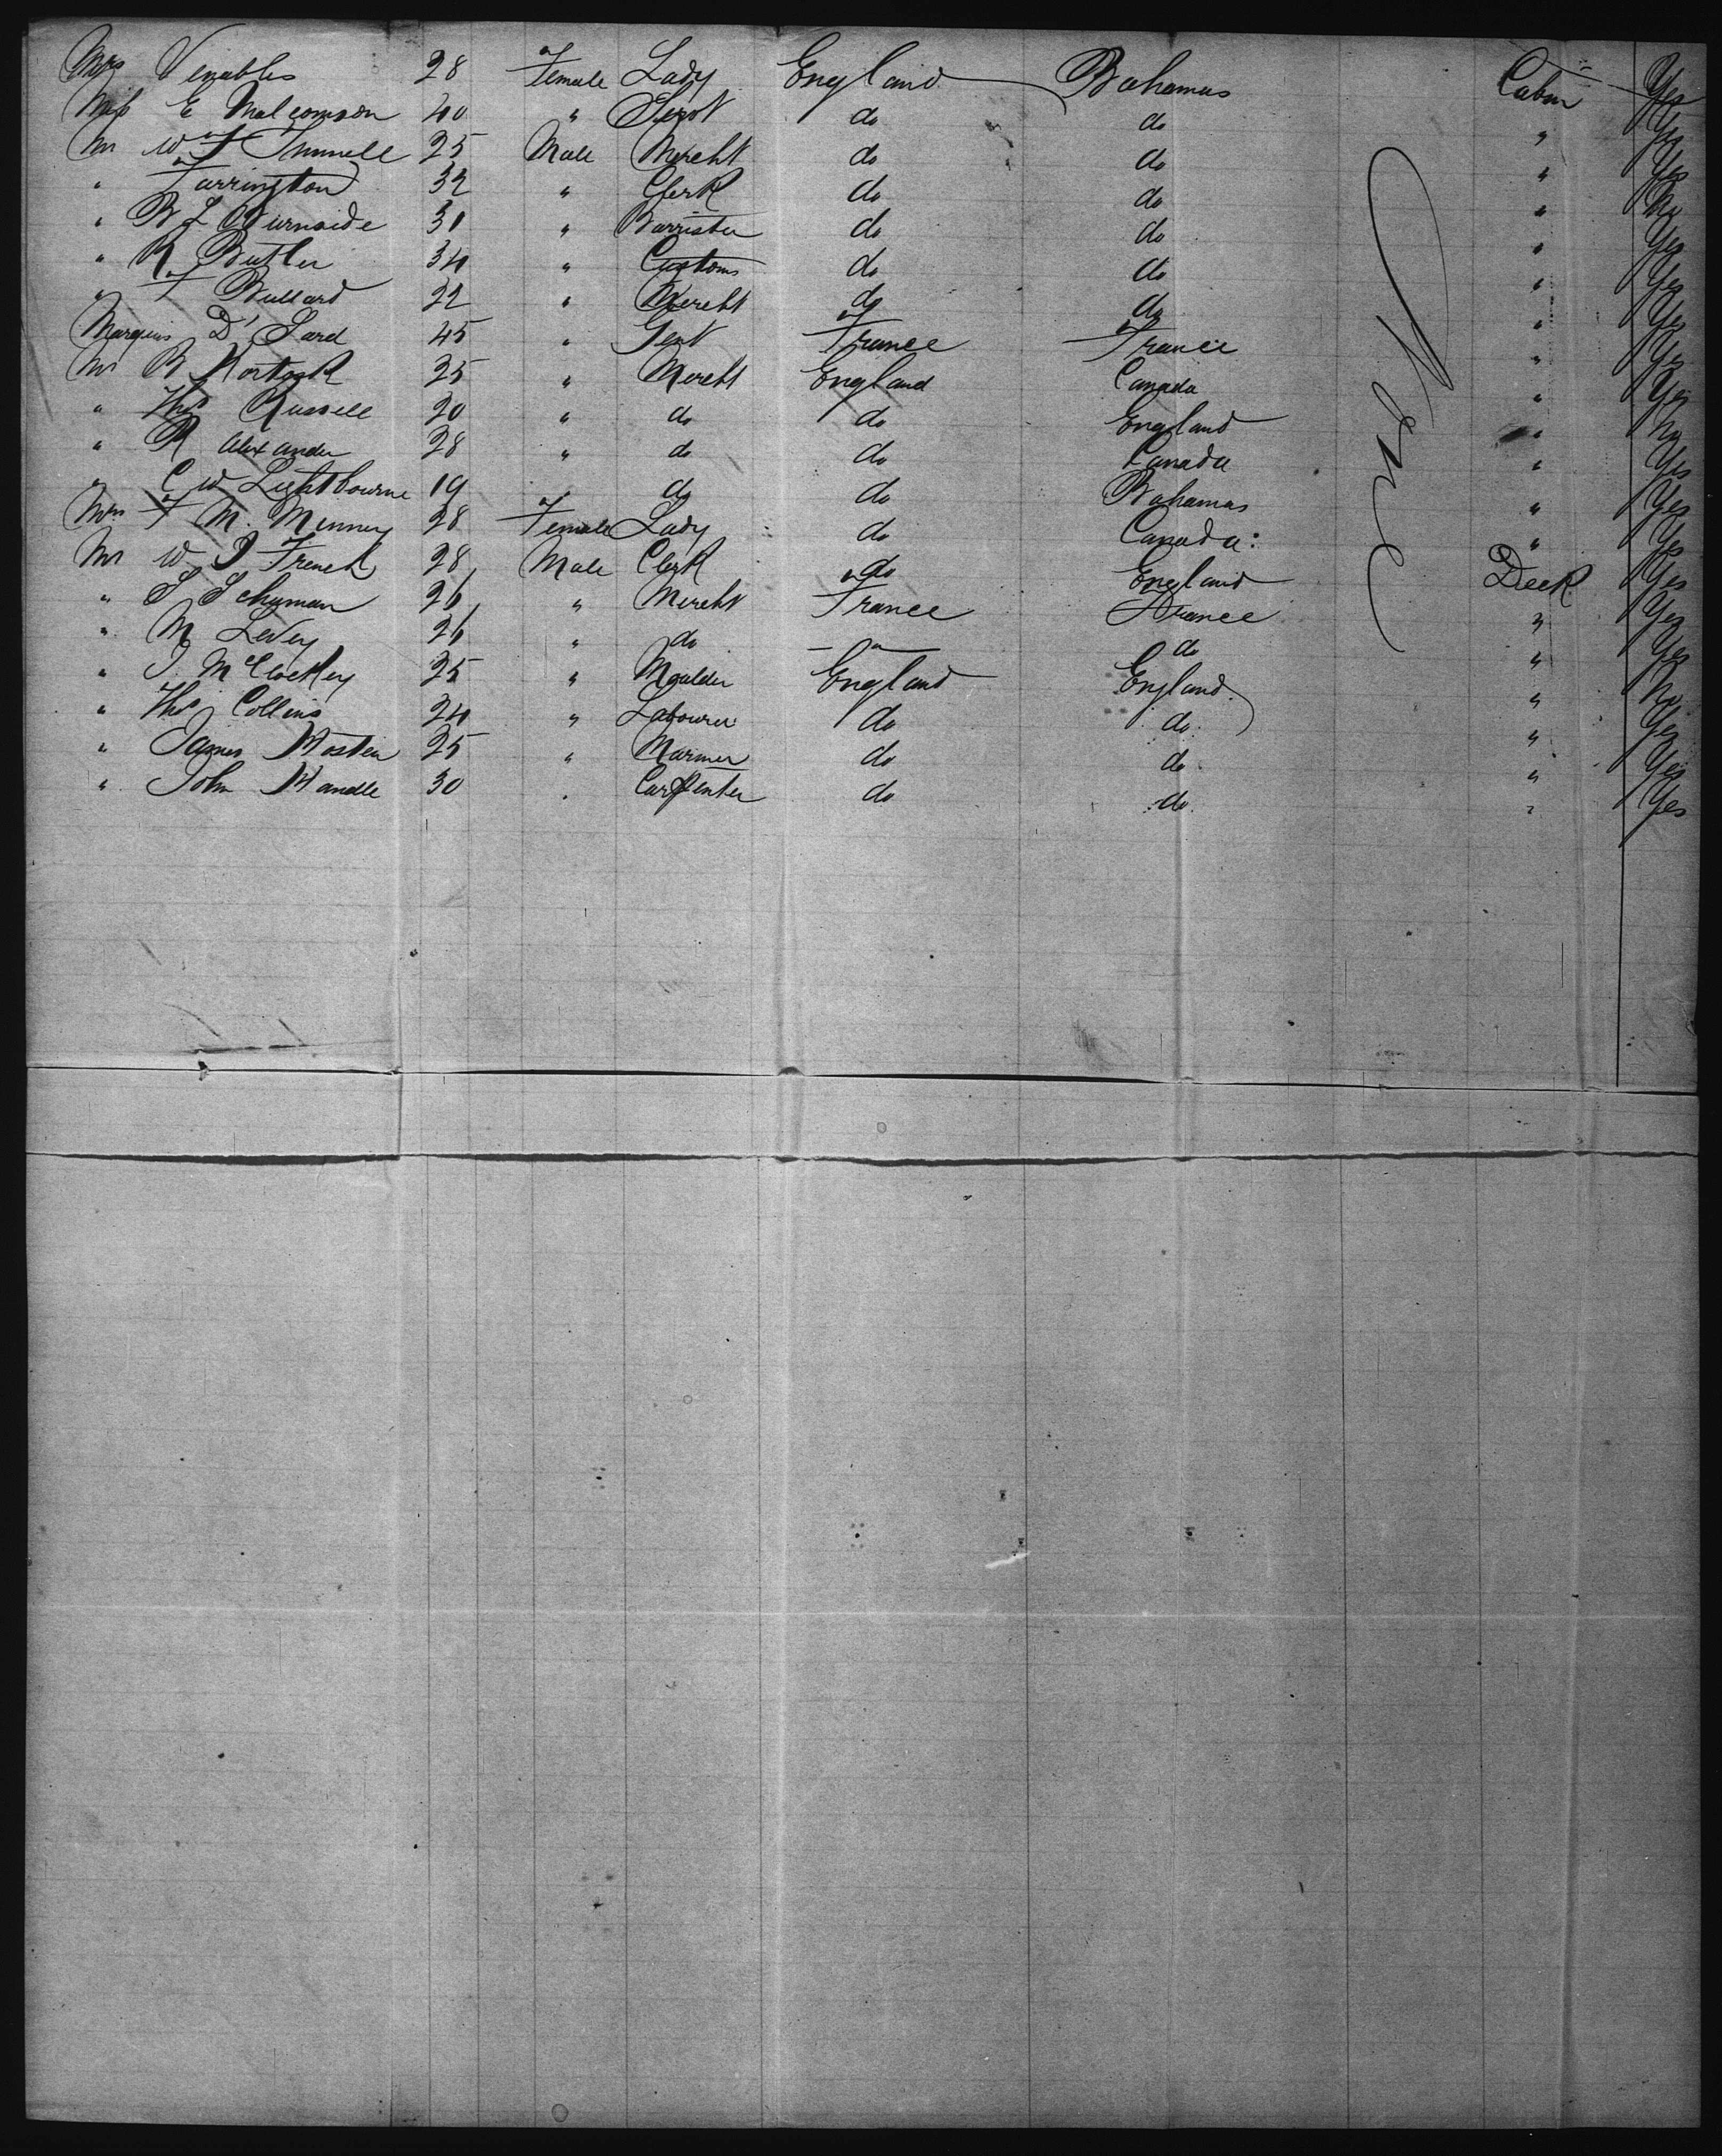 Mrs Venables 28 Female Lady England Bahamas Cabin Yes
Miss E Malcomson 40 " Servt do do " Yes
Mr W F 25 Male Mercht do do " Yes
" Farrington 32 " Clerk do do " No
" B L Burnside 30 " Barrister do do " Yes
" R Butler 34 " Customs do do " Yes
" F Bullard 22 " Mercht do do " Yes
Marquis D' Sard 45 " Gent France France " Yes
Mr B 25 " Mercht England Canada " Yes
" Thos Russell 20 " do do England " No
" R Alexander 28 " do do Canada " Yes
" C W Lightbourne 19 " do do Bahamas " Yes
Mrs F M. Menney 28 Female Lady do Canada " Yes
Mr W J French 28 Male Clerk do England Deck Yes
" S Schuman 26 " Mercht France France " Yes
" M Levey 26 " do " do " Yes
" J. McCloskey 25 " Moulder England England " No
" Thos Collins 24 " Labourer do do " Yes
" James 25 " Mariner do do " Yes
" John Wandle 30 " Carpenter do do " Yes